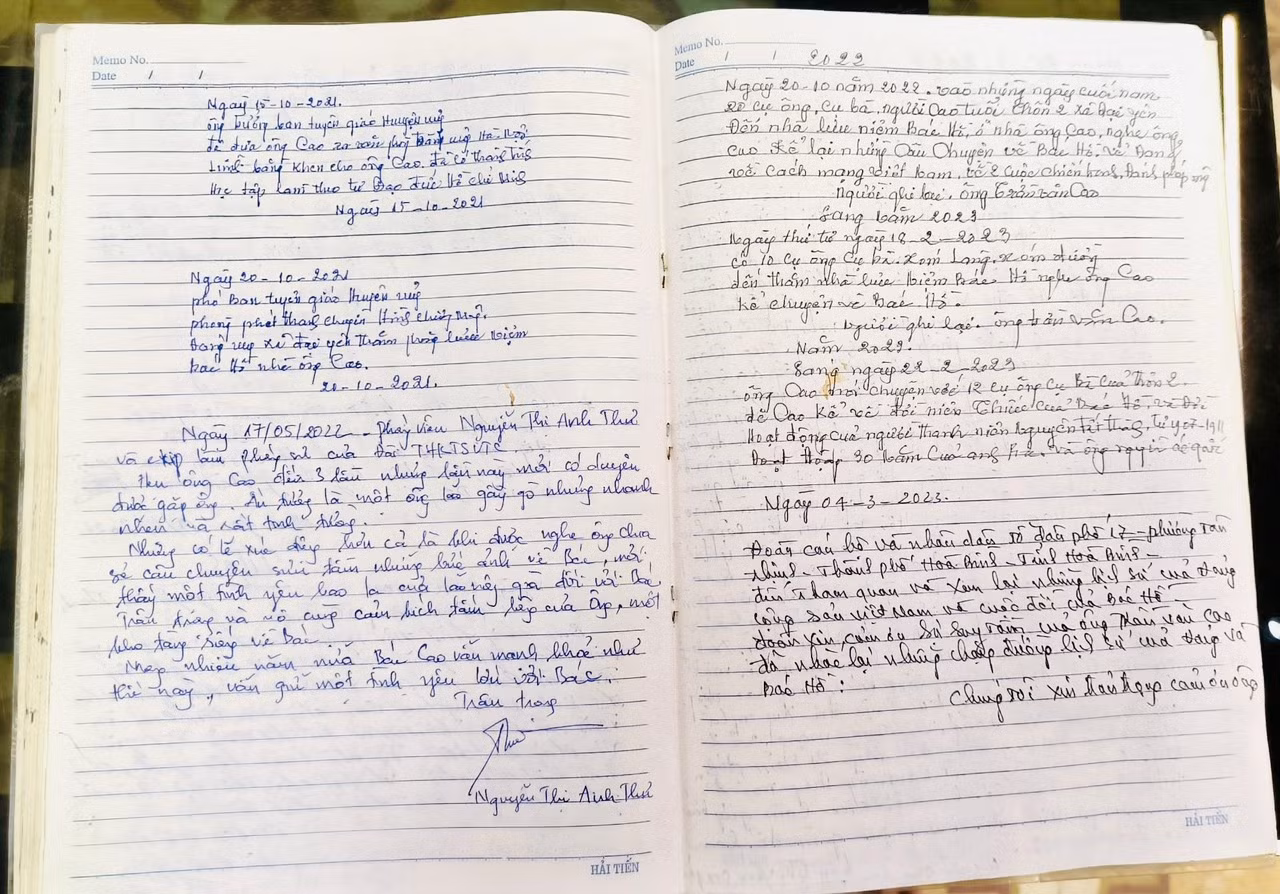 Memo No.
Date / /
Ngày 15-10-2021.
ông trưởng ban tuyên giáo Huyện uỷ
đã đưa ông Cao ra văn phòng Đảng uỷ
bằng khen cho ông Cao. Đã có thành tích
Học tập làm theo tư Đạo đức Hồ chí Minh
Ngày 15-10-2021
Ngày 20-10-2021
phó Ban tuyên giáo Huyện uỷ
phòng phát thanh chuyền Hình
Đảng uỷ xã đại yên thăm phòng lưu niệm
Bác Hồ nhà ông Cao.
20-10-2021.
Ngày 17/05/2022 - Phóng viên Nguyễn Thị Anh Thư
và ekip làm phóng sự của Đài
ông Cao đến 3 lần nhưng lần này mới có duyên
được gặp ông. Ấn tượng là một ông lão gầy gò nhưng nhanh
nhẹn và rất tinh tường.
Nhưng có lẽ xúc động hơn cả là khi được nghe ông chia
sẻ câu chuyện sưu tầm những bức ảnh về Bác, mới
thấy một tình yêu bao la của lão dành đối với Bác
Trân trọng và vô cùng cảm kích tấm lòng của Ông, một
kho tàng sống về Bác
Mong nhiều năm nữa Bác Cao vẫn mạnh khoẻ như
thế này, vẫn giữ một tình yêu lớn với Bác.
Trân trọng
Thư
Nguyễn Thị Anh Thư
HẢI TIẾN
Memo No.
Date / / 2022
Ngày 20-10 năm 2022. vào những ngày cuối năm
20 cụ ông, cụ bà, người Cao tuổi thôn 2 xã Đại yên
Đến nhà lưu niệm Bác Hồ, ở nhà ông Cao, nghe ông
Cao kể lại những Câu Chuyện về Bác Hồ. về Đảng
về Cách mạng việt Nam. về 2 cuộc chiến tranh, đánh pháp
Người ghi lại. ông Trần văn Cao
Sang năm 2023
Ngày thứ tư ngày 18-2-2023
có 10 cụ ông cụ bà. xóm Làng. xóm
đến thăm nhà lưu niệm Bác Hồ nghe ông Cao
kể chuyện về Bác Hồ.
Người ghi lại. ông trần văn Cao.
Năm 2023.
Sang ngày 22-2-2023
ông Cao nói chuyện với 12 cụ ông Cụ Bà Của thôn 2.
để Cao kể về đời niên Thiếu của Bác Hồ và
Hoạt động của người thanh niên Nguyễn tất
Hoạt động 30 năm Của
Ngày 04-3-2023.
Đoàn cán bộ và nhân dân tổ dân phố 17 - phường Tân
Thịnh - Thành phố Hoà Bình - Tỉnh Hoà Bình -
đến Tham quan và xem lại những lịch sử của Đảng
cộng sản việt Nam và cuộc đời của Bác Hồ -
đoàn xin cảm ơn sự sưu tầm của ông Trần văn Cao
đã nhắc lại những chặng đường lịch sử của Đảng và
Bác Hồ!
Chúng tôi xin trân trọng cảm ơn ông
HẢI TIẾN